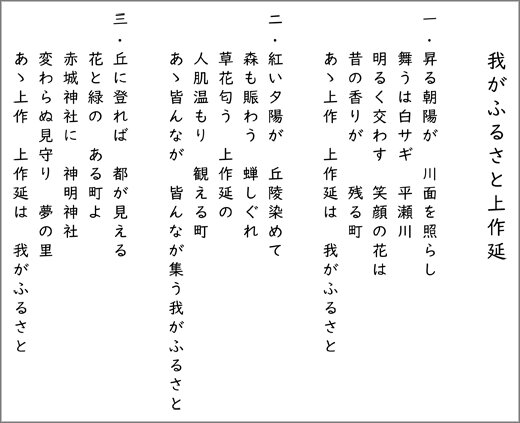 我がふるさと上作延
一・昇る朝陽が　川面を照らし
舞うは白サギ　平瀬川
明るく交わす　笑顔の花は
昔の香りが　残る町
あゝ上作　上作延は　我がふるさと
二・紅い夕陽が　丘陵染めて
森も賑わう　蝉しぐれ
草花匂う　上作延の
人肌温もり　観える町
あゝ皆んなが　皆んなが集う我がふるさと
三・丘に登れば　都が見える
花と緑の　ある町よ
赤城神社に　神明神社
変わらぬ見守り　夢の里
あゝ上作　上作延は　我がふるさと